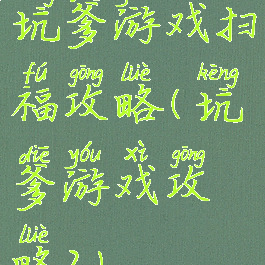 坑爹游戏扫
fú gōng lüè kēng
福攻略(坑
diē yóu xì gōng
爹游戏攻
lüè
略2)